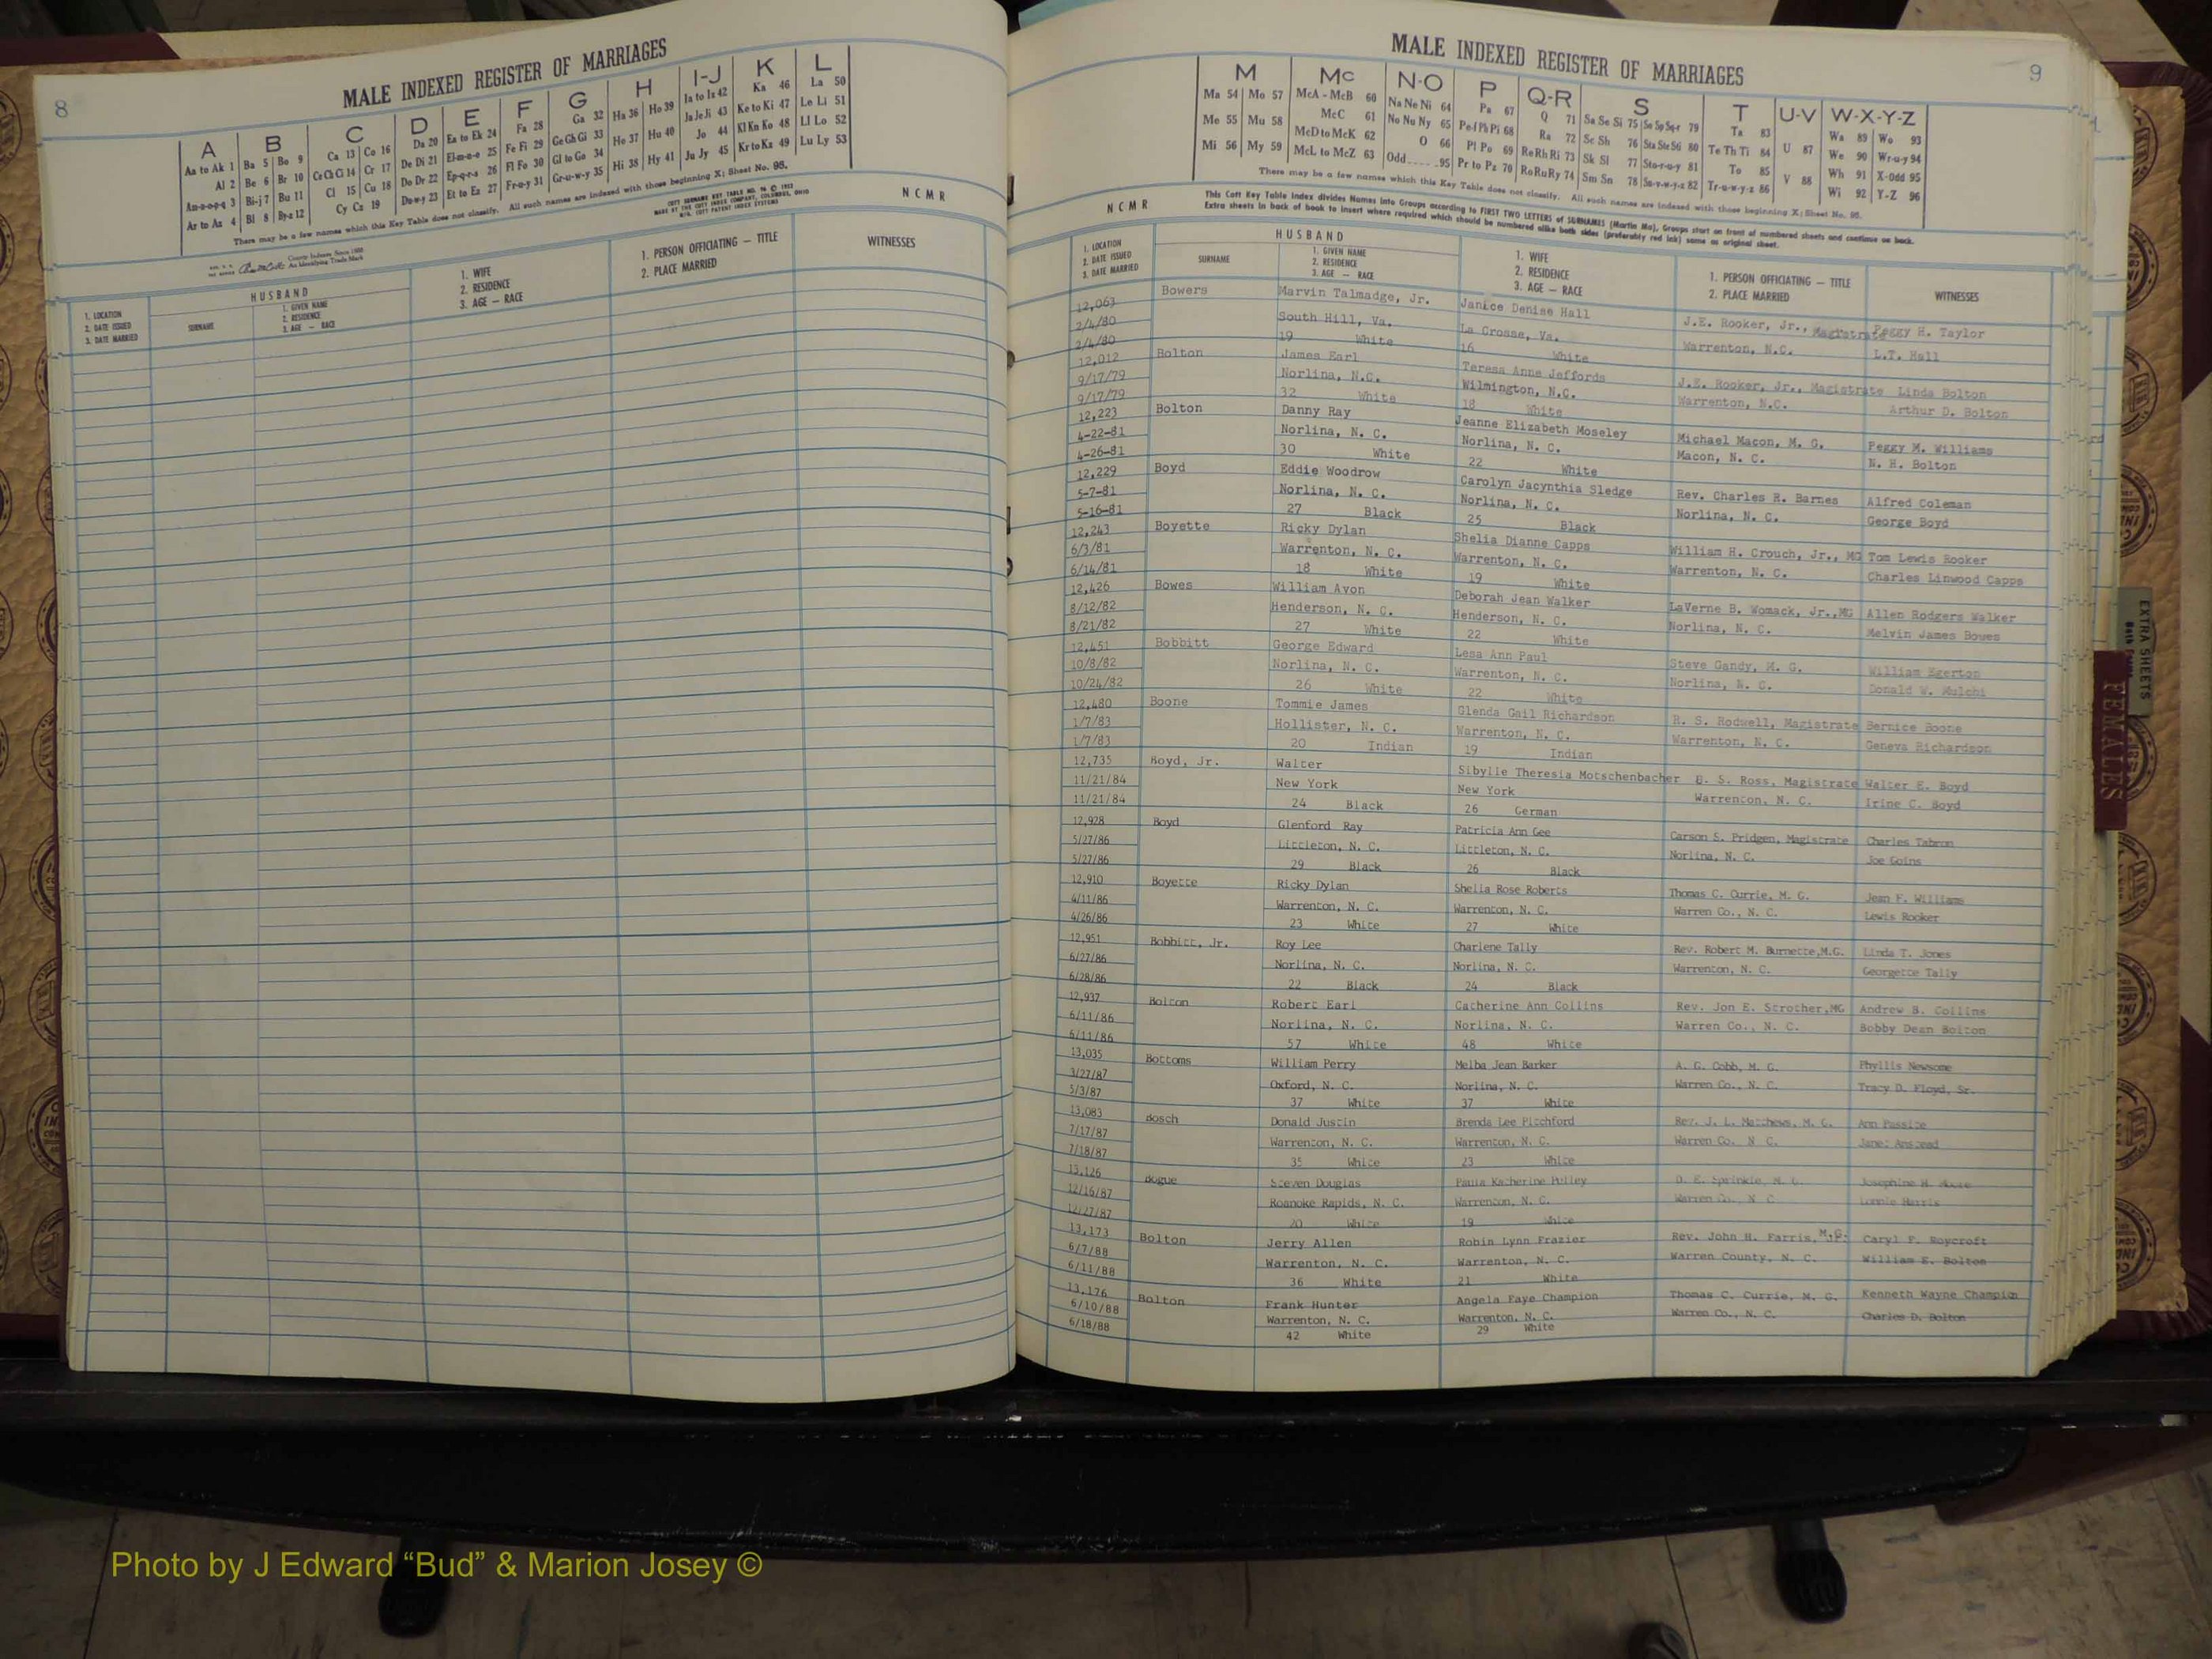 8
MALE INDEXED REGISTER OF MARRIAGES
A B C D E F G H I-J K L
Aa to Ak 1 Ba 5 Bo 9 Ca 13 Co 16 Da 20 Ea to Ek 24 Fa 28 Ga 32 Ha 36 Ho 39 Ia to Iz 42 Ka 46 La 50
Al 2 Be 6 Br 10 Ce Ch Ci 14 Cr 17 De Di 21 El-m-n-o 25 Fe Fi 29 Ge Gh Gi 33 He 37 Hu 40 Ja Je Ji 43 Ke to Ki 47 Le Li 51
Am-n-o-p-q 3 Bi-j 7 Bu 11 Cl 15 Cu 18 Do Dr 22 Ep-q-r-s 26 Fl Fo 30 Gl to Go 34 Hi 38 Hy 41 Jo 44 Kl Kn Ko 48 Ll Lo 52
Ar to Az 4 Bl 8 By-z 12 Cy Cz 19 Du-w-y 23 Et to Ez 27 Fr-u-y 31 Gr-u-w-y 35 Ju Jy 45 Kr to Kz 49 Lu Ly 53
There may be a few names which this Key Table does not classify. All such names are indexed with those beginning X; Sheet No. 95.
N C M R
HUSBAND
1. LOCATION
2. DATE ISSUED
3. DATE MARRIED
SURNAME
1. GIVEN NAME
2. RESIDENCE
3. AGE — RACE
1. WIFE
2. RESIDENCE
3. AGE — RACE
1. PERSON OFFICIATING — TITLE
2. PLACE MARRIED
WITNESSES
MALE INDEXED REGISTER OF MARRIAGES
9
M Mc N-O P Q-R S T U-V W-X-Y-Z
Ma 54 Mo 57 McA - McB 60 Na Ne Ni 64 Pa 67 Q 71 Sa Se Si 75 So Sp Sq-r 79 Ta 83 U 87 Wa 89 Wo 93
Me 55 Mu 58 McC 61 No Nu Ny 65 Pe-f Ph Pi 68 Ra 72 Sc Sh 76 Sta Ste Sti 80 Te Th Ti 84 V 88 We 90 Wr-u-y 94
Mi 56 My 59 McD to McK 62 O 66 Pl Po 69 Re Rh Ri 73 Sk Sl 77 Sto-r-u-y 81 To 85 Wh 91 X-Odd 95
McL to McZ 63 Odd 95 Pr to Pz 70 Ro Ru Ry 74 Sm Sn 78 Su-v-w-y-z 82 Tr-u-w-y-z 86 Wi 92 Y-Z 96
There may be a few names which this Key Table does not classify. All such names are indexed with those beginning X; Sheet No. 95.
This Cott Key Table Index divides Names into Groups according to FIRST TWO LETTERS of SURNAMES (Martin Ma), Groups start on front of numbered sheets and continue on back.
Extra sheets in back of book to insert where required which should be numbered alike both sides (preferably red ink) same as original sheet.
N C M R
HUSBAND
1. LOCATION
2. DATE ISSUED
3. DATE MARRIED
SURNAME
1. GIVEN NAME
2. RESIDENCE
3. AGE — RACE
1. WIFE
2. RESIDENCE
3. AGE — RACE
1. PERSON OFFICIATING — TITLE
2. PLACE MARRIED
WITNESSES
12,063 Bowers Marvin Talmadge, Jr. Janice Denise Hall J.E. Rooker, Jr., Magistrate Peggy H. Taylor
2/4/80 South Hill, Va. La Crosse, Va. Warrenton, N.C. L.T. Hall
2/4/80 19 White 16 White
12,012 Bolton James Earl Teresa Anne Jeffords J.E. Rooker, Jr., Magistrate Linda Bolton
9/17/79 Norlina, N.C. Wilmington, N.C. Warrenton, N.C. Arthur D. Bolton
9/17/79 32 White 18 White
12,223 Bolton Danny Ray Jeanne Elizabeth Moseley Michael Macon, M. G. Peggy M. Williams
4-22-81 Norlina, N. C. Norlina, N. C. Macon, N. C. N. H. Bolton
4-26-81 30 White 22 White
12,229 Boyd Eddie Woodrow Carolyn Jacynthia Sledge Rev. Charles R. Barnes Alfred Coleman
5-7-81 Norlina, N. C. Norlina, N. C. Norlina, N. C. George Boyd
5-16-81 27 Black 25 Black
12,243 Boyette Ricky Dylan Shelia Dianne Capps William H. Crouch, Jr., MG Tom Lewis Rooker
6/3/81 Warrenton, N. C. Warrenton, N. C. Warrenton, N. C. Charles Linwood Capps
6/14/81 18 White 19 White
12,426 Bowes William Avon Deborah Jean Walker LaVerne B. Womack, Jr.,MG Allen Rodgers Walker
8/12/82 Henderson, N. C. Henderson, N. C. Norlina, N. C. Melvin James Bowes
8/21/82 27 White 22 White
12,451 Bobbitt George Edward Lesa Ann Paul Steve Gandy, M. G. William Egerton
10/8/82 Norlina, N. C. Warrenton, N. C. Norlina, N. C. Donald W. Mulchi
10/24/82 26 White 22 White
12,480 Boone Tommie James Glenda Gail Richardson R. S. Rodwell, Magistrate Bernice Boone
1/7/83 Hollister, N. C. Warrenton, N. C. Warrenton, N. C. Geneva Richardson
1/7/83 20 Indian 19 Indian
12,735 Boyd, Jr. Walter Sibylle Theresia Motschenbacher D. S. Ross, Magistrate Walter E. Boyd
11/21/84 New York New York Warrenton, N. C. Irine C. Boyd
11/21/84 24 Black 26 German
12,928 Boyd Glenford Ray Patricia Ann Gee Carson S. Pridgen, Magistrate Charles Tabron
5/27/86 Littleton, N. C. Littleton, N. C. Norlina, N. C. Joe Goins
5/27/86 29 Black 26 Black
12,910 Boyette Ricky Dylan Shelia Rose Roberts Thomas C. Currie, M. G. Jean F. Williams
4/11/86 Warrenton, N. C. Warrenton, N. C. Warren Co., N. C. Lewis Rooker
4/26/86 23 White 27 White
12,951 Bobbitt, Jr. Roy Lee Charlene Tally Rev. Robert M. Burnette,M.G. Linda T. Jones
6/27/86 Norlina, N. C. Norlina, N. C. Warrenton, N. C. Georgette Tally
6/28/86 22 Black 24 Black
12,937 Bolton Robert Earl Catherine Ann Collins Rev. Jon E. Strother,MG Andrew B. Collins
6/11/86 Norlina, N. C. Norlina, N. C. Warren Co., N. C. Bobby Dean Bolton
6/11/86 57 White 48 White
13,035 Bottoms William Perry Melba Jean Barker A. G. Cobb, M. G. Phyllis Newsome
3/27/87 Oxford, N. C. Norlina, N. C. Warren Co., N. C. Tracy D. Floyd, Sr.
5/3/87 37 White 37 White
13,083 Bosch Donald Justin Brenda Lee Pitchford Rev. J. L. Matthews, M. G. Ann
7/17/87 Warrenton, N. C. Warrenton, N. C. Warren Co. N C. Janet
7/18/87 35 White 23 White
13,126 Bogue Steven Douglas Paula Katherine Pelley D. E. Sprinkle, M. G. Josephine H.
12/16/87 Roanoke Rapids, N. C. Warrenton, N. C. Warren Co., N C Lonnie Harris
12/27/87 20 White 19 White
13,173 Bolton Jerry Allen Robin Lynn Frazier Rev. John H. Farris, M.G. Caryl F. Roycroft
6/7/88 Warrenton, N. C. Warrenton, N. C. Warren County, N. C. William E. Bolton
6/11/88 36 White 21 White
13,176 Bolton Frank Hunter Angela Faye Champion Thomas C. Currie, M. G. Kenneth Wayne Champion
6/10/88 Warrenton, N. C. Warrenton, N. C. Warren Co., N. C. Charles D. Bolton
6/18/88 42 White 29 White
EXTRA SHEETS
FEMALES
Photo by J Edward “Bud” & Marion Josey ©